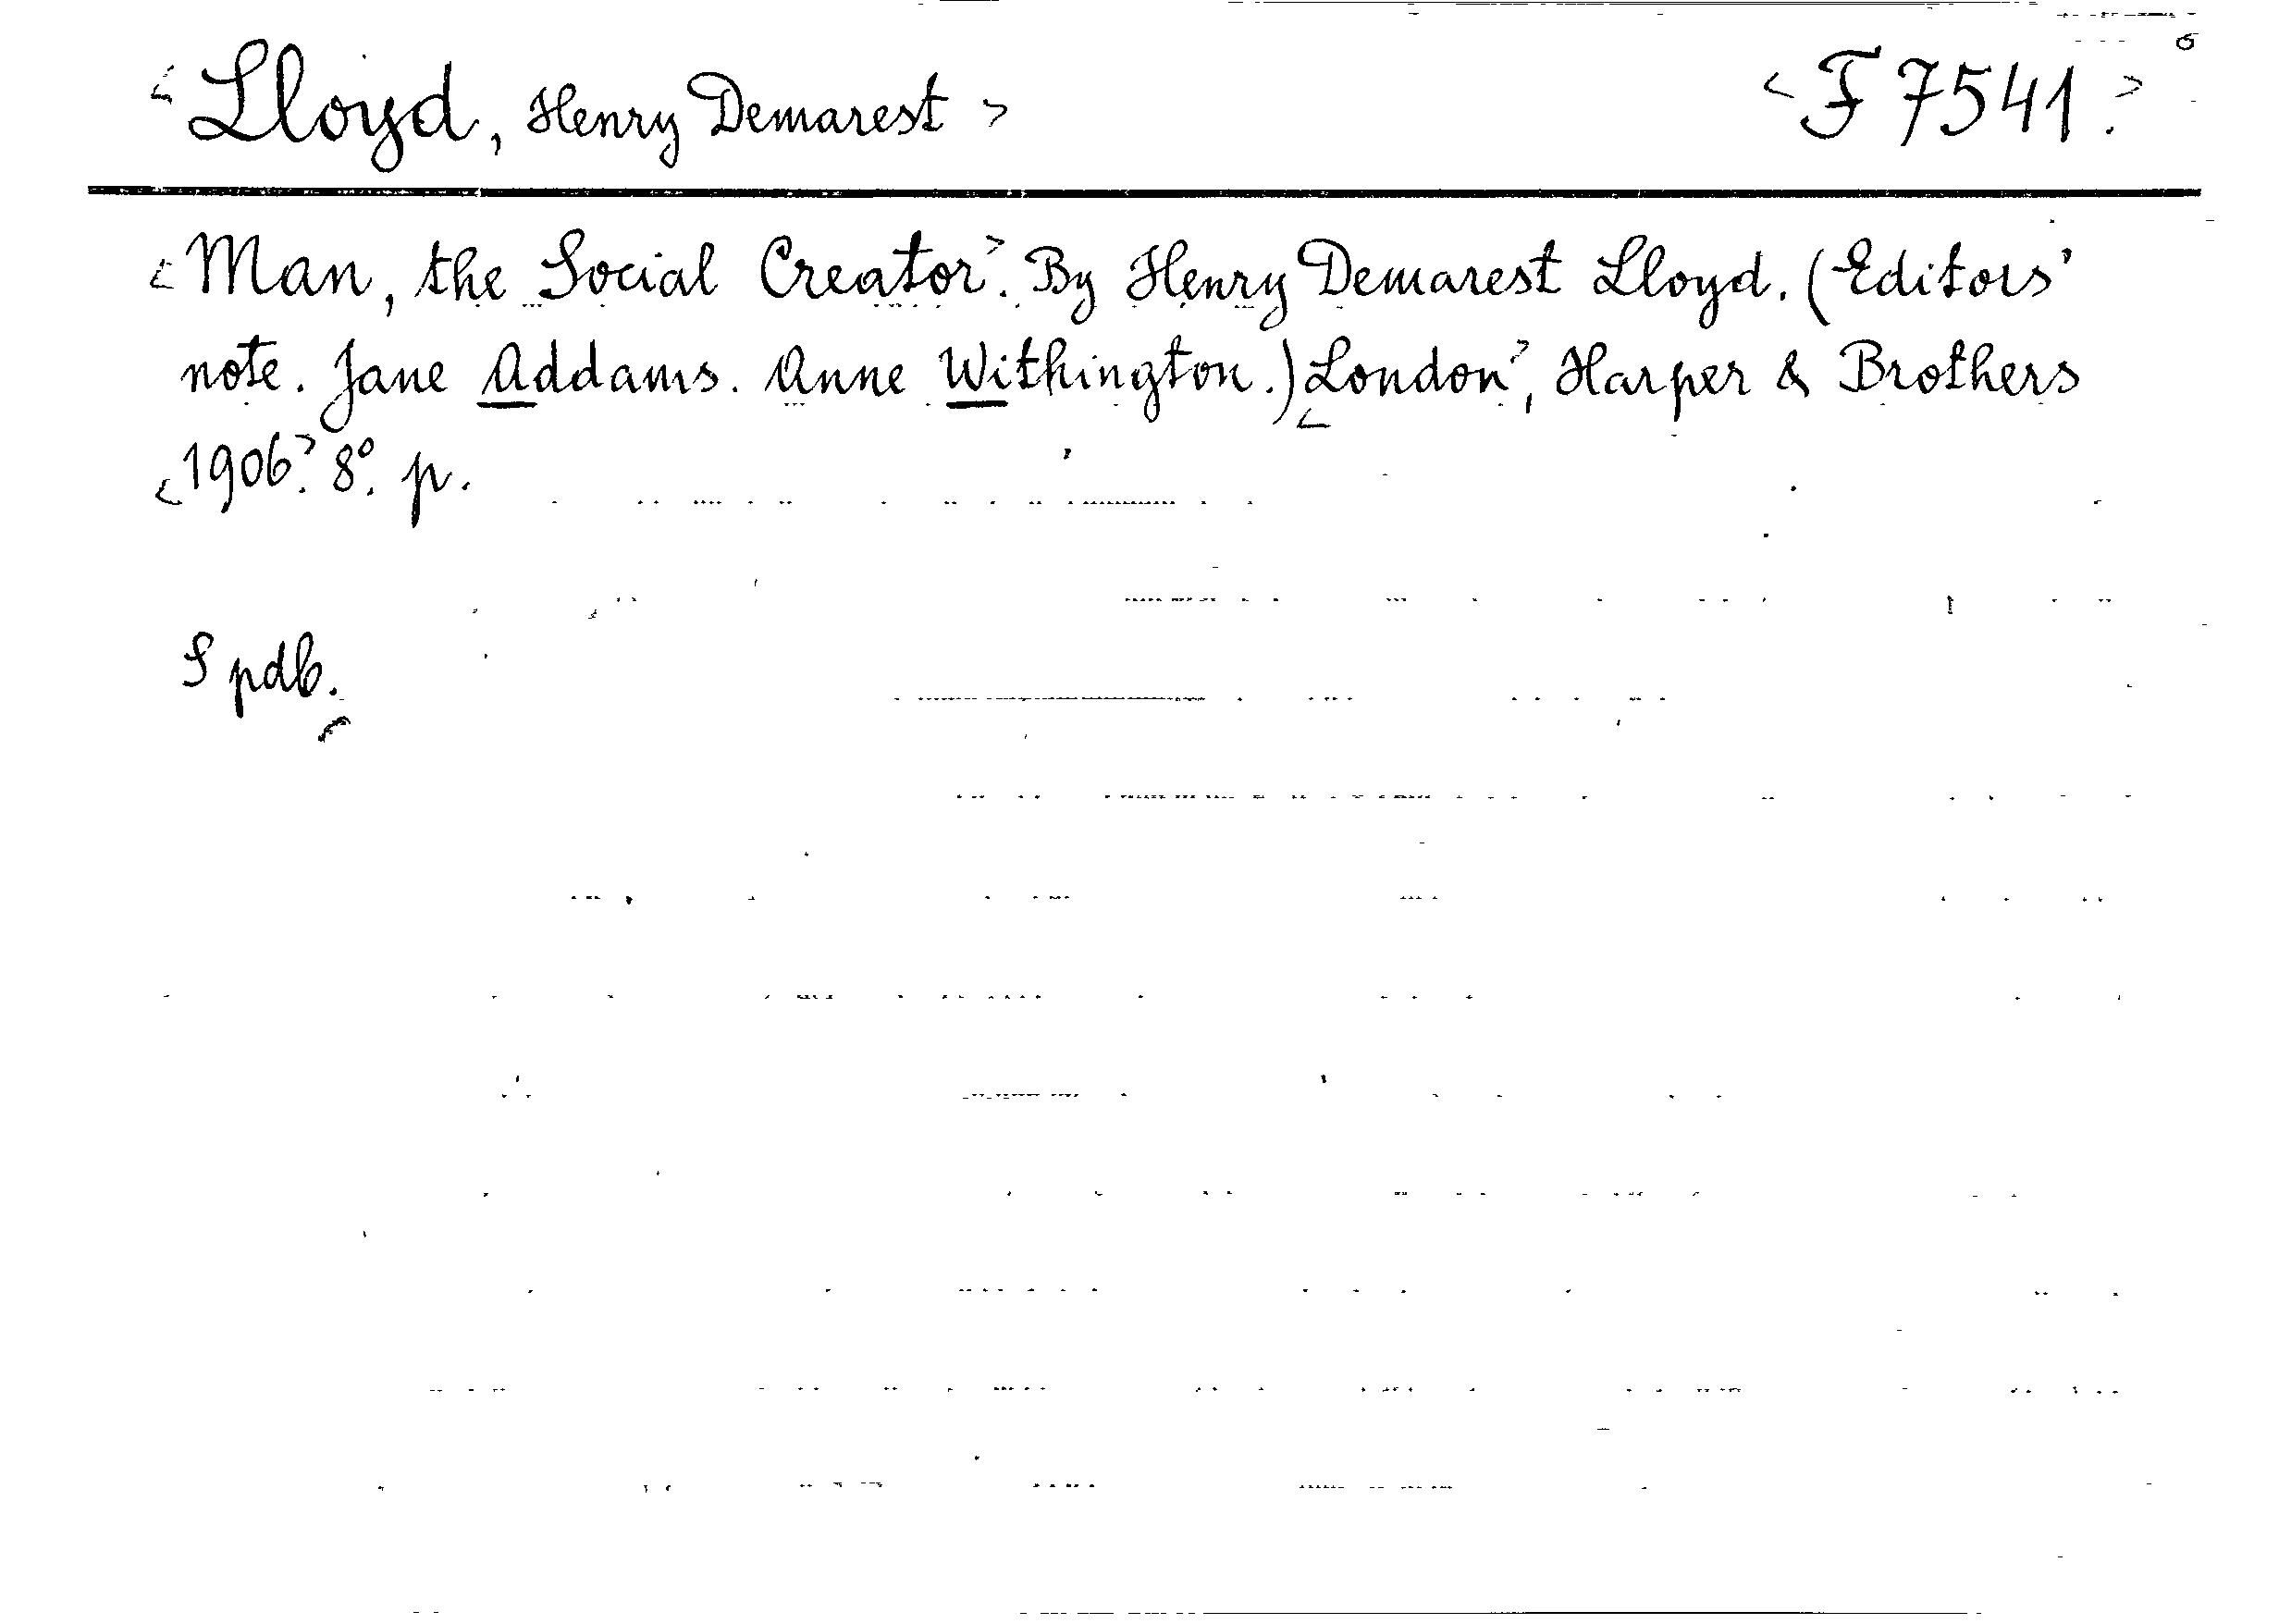 <Lloyd, Henry Demarest> <F 7541.>
<Man, the Social Creator>. By Henry Demarest Lloyd. (Editors'
note. Jane Addams. Anne Withington.) <London>, Harper & Brothers
<1906>. 8°. p.
S pdb.